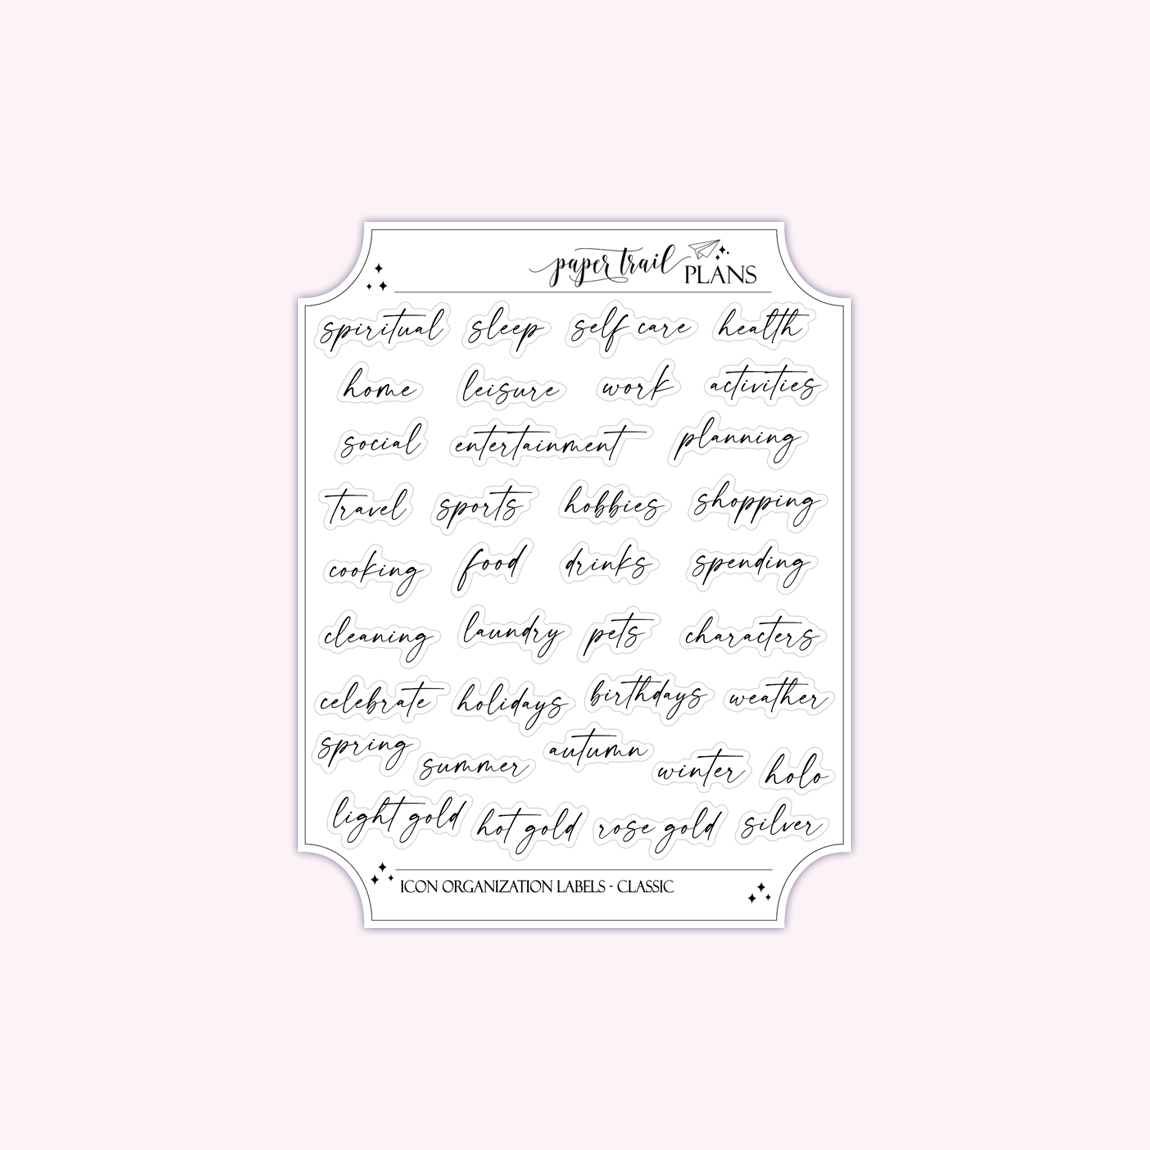 paper trail PLANS
spiritual sleep self care health
home leisure work activities
social entertainment planning
travel sports hobbies shopping
cooking food drinks spending
cleaning laundry pets characters
celebrate holidays birthdays weather
spring summer autumn winter holo
light gold hot gold rose gold silver
ICON ORGANIZATION LABELS - CLASSIC